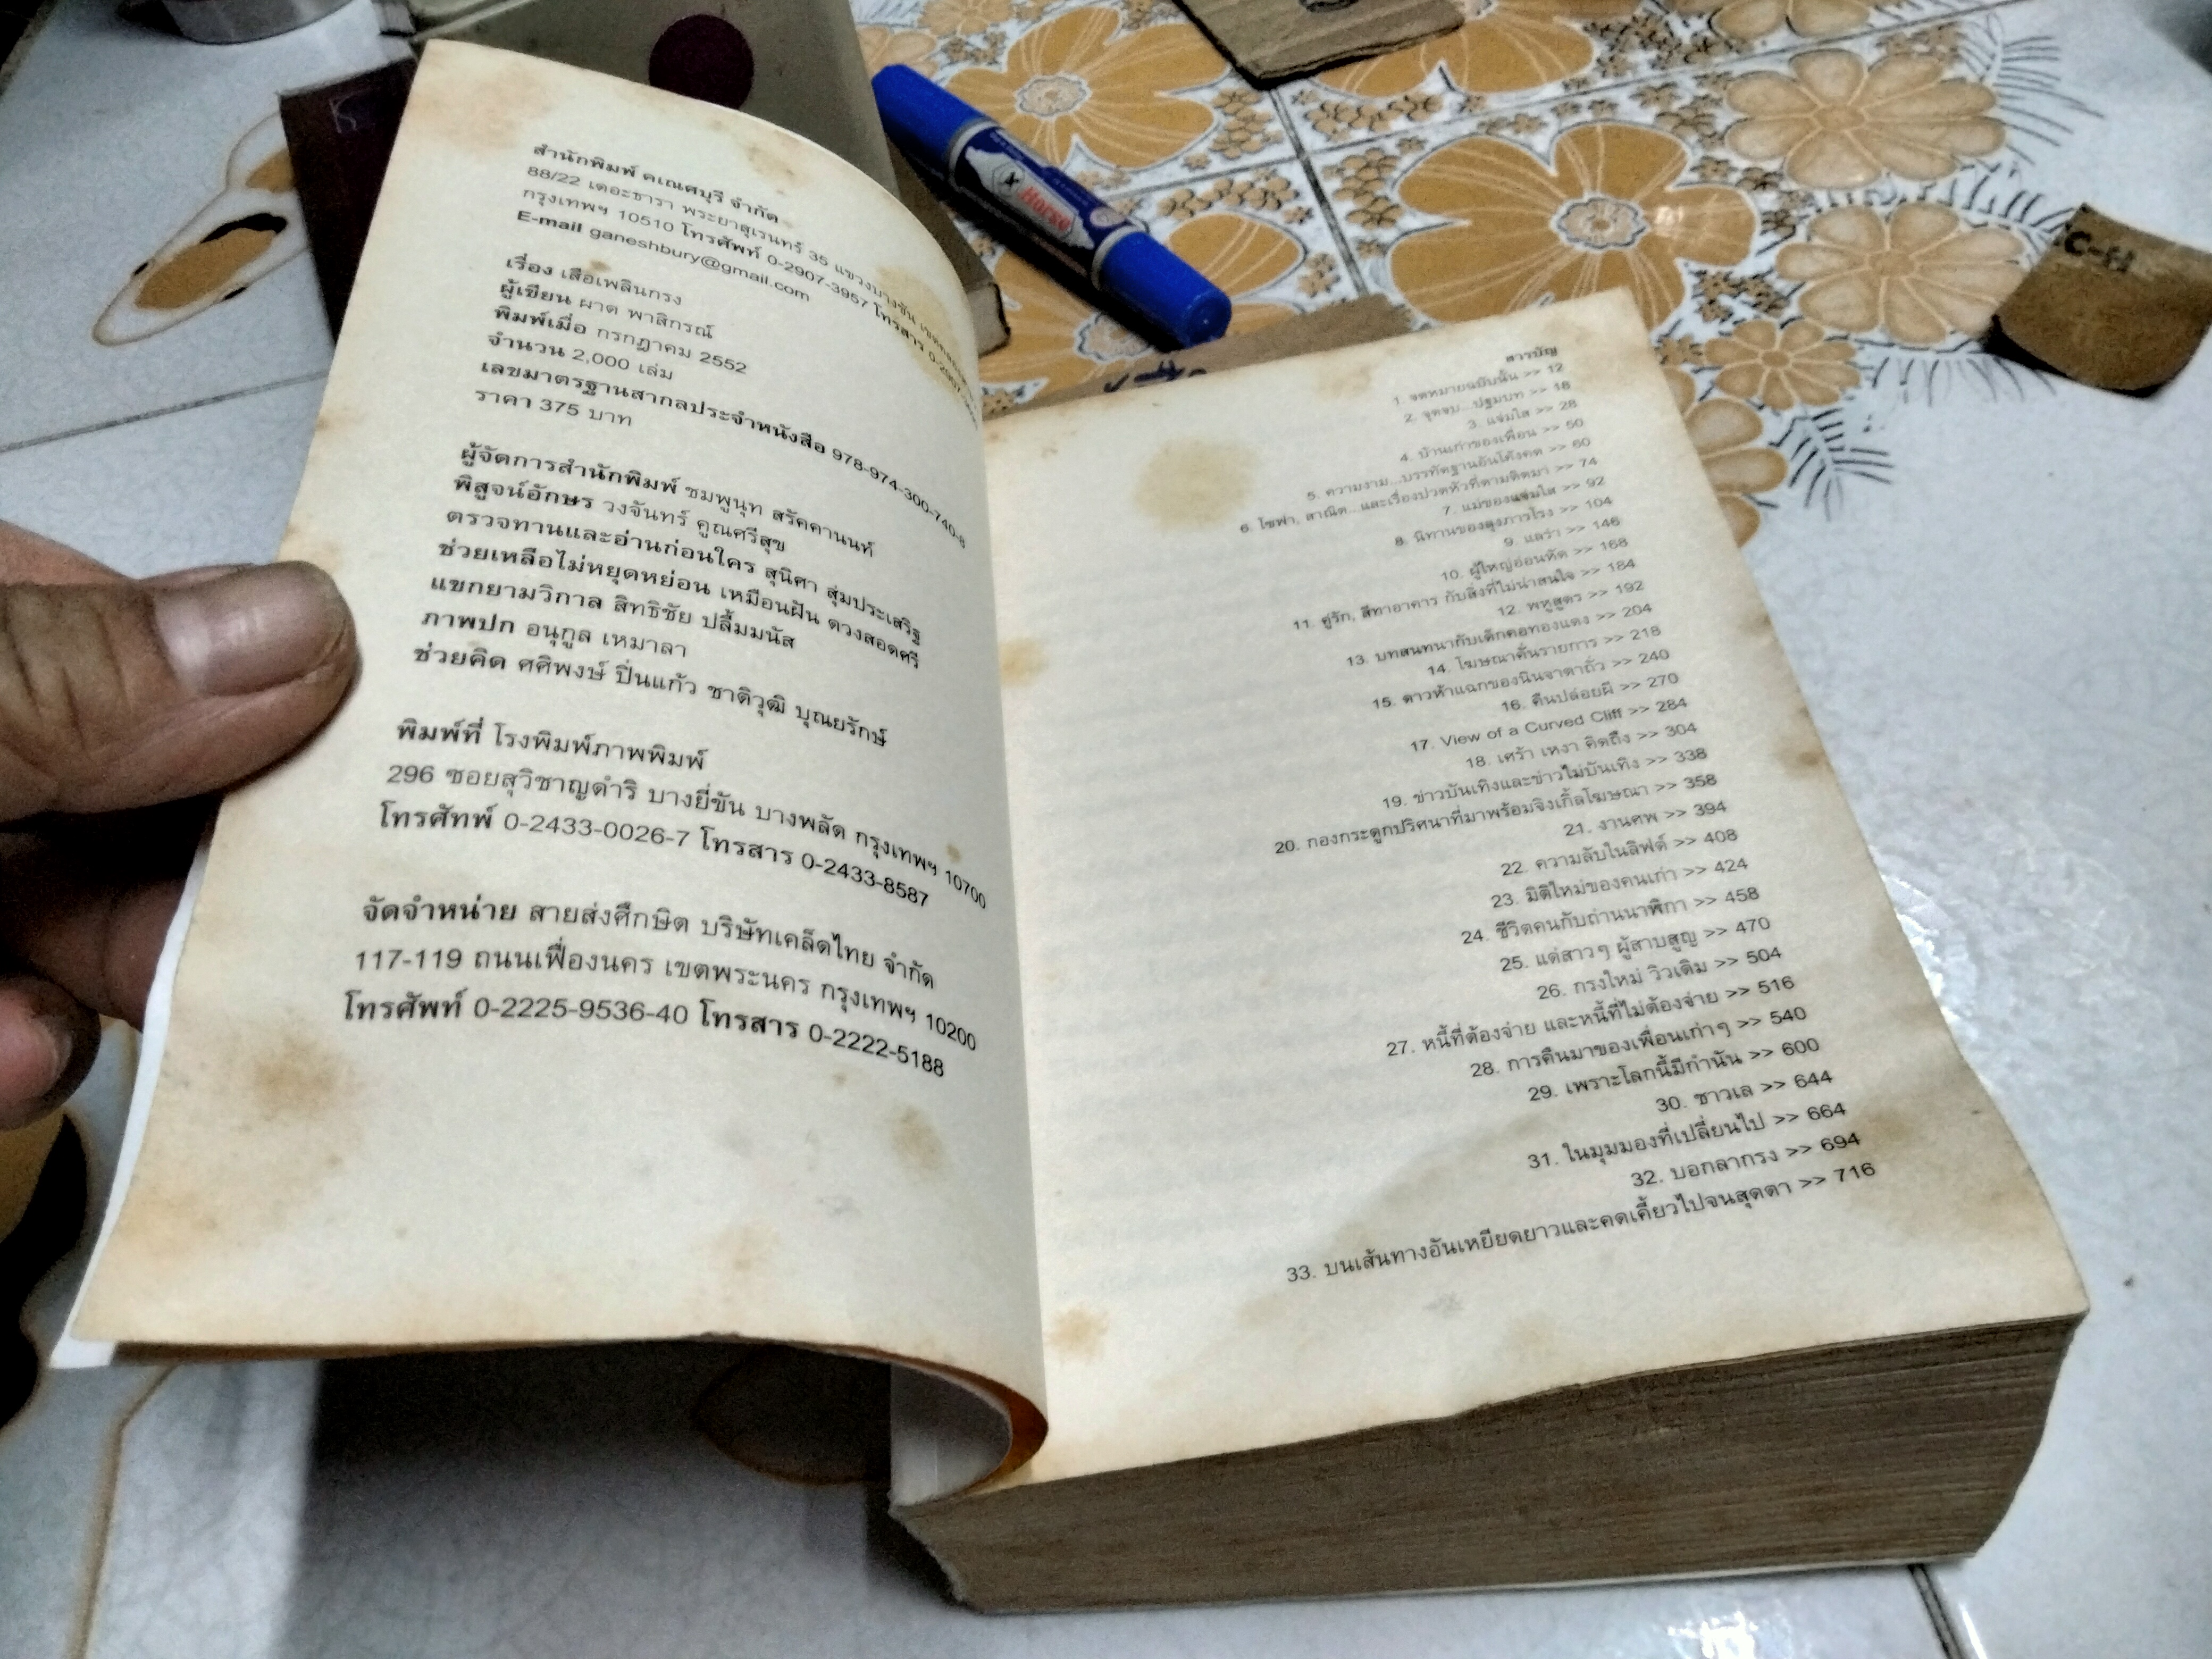 สำนักพิมพ์ คเณศบุรี จำกัด
88/22 เดอะธารา พระยาสุเรนทร์ 35 แขวงบางชัน
กรุงเทพฯ 10510 โทรศัพท์ 0-2907-3957 โทรสาร
E-mail ganeshbury@gmail.com
เรื่อง เสือเพลินกรง
ผู้เขียน ผาด พาสิกรณ์
พิมพ์เมื่อ กรกฎาคม 2552
จำนวน 2,000 เล่ม
เลขมาตรฐานสากลประจำหนังสือ 978-974-300-740-8
ราคา 375 บาท
ผู้จัดการสำนักพิมพ์ ชมพูนุท สรัคคานนท์
พิสูจน์อักษร วงจันทร์ คูณศรีสุข
ตรวจทานและอ่านก่อนใคร สุนิศา สุ่มประเสริฐ
ช่วยเหลือไม่หยุดหย่อน เหมือนฝัน ดวงสอดศรี
แขกยามวิกาล สิทธิชัย ปลื้มมนัส
ภาพปก อนุกูล เหมาลา
ช่วยคิด ศศิพงษ์ ปิ่นแก้ว ชาติวุฒิ บุณยรักษ์
พิมพ์ที่ โรงพิมพ์ภาพพิมพ์
296 ซอยสุวิชาญดำริ บางยี่ขัน บางพลัด กรุงเทพฯ 10700
โทรศัทพ์ 0-2433-0026-7 โทรสาร 0-2433-8587
จัดจำหน่าย สายส่งศึกษิต บริษัทเคล็ดไทย จำกัด
117-119 ถนนเฟื่องนคร เขตพระนคร กรุงเทพฯ 10200
โทรศัพท์ 0-2225-9536-40 โทรสาร 0-2222-5188
สารบัญ
1. จดหมายฉบับนั้น >> 12
2. จุดจบ...ปฐมบท >> 18
3. แจ่มใส >> 28
4. บ้านเก่าของเพื่อน >> 50
5. ความงาม...บรรทัดฐานอันโค้งคด >> 60
6. โซฟา, สาณิต...และเรื่องปวดหัวที่ตามติดมา >> 74
7. แม่ของแจ่มใส >> 92
8. นิทานของลุงภารโรง >> 104
9. แลร่า >> 146
10. ผู้ใหญ่อ่อนหัด >> 168
11. คู่รัก, สีทาอาคาร กับสิ่งที่ไม่น่าสนใจ >> 184
12. พหูสูตร >> 192
13. บทสนทนากับเด็กคอทองแดง >> 204
14. โฆษณาคั่นรายการ >> 218
15. ดาวห้าแฉกของนินจาตาถั่ว >> 240
16. คืนปล่อยผี >> 270
17. View of a Curved Cliff >> 284
18. เศร้า เหงา คิดถึง >> 304
19. ข่าวบันเทิงและข่าวไม่บันเทิง >> 338
20. กองกระดูกปริศนาที่มาพร้อมจิงเกิ้ลโฆษณา >> 358
21. งานศพ >> 394
22. ความลับในลิฟต์ >> 408
23. มิติใหม่ของคนเก่า >> 424
24. ชีวิตคนกับถ่านนาฬิกา >> 458
25. แด่สาวๆ ผู้สาบสูญ >> 470
26. กรงใหม่ วิวเดิม >> 504
27. หนี้ที่ต้องจ่าย และหนี้ที่ไม่ต้องจ่าย >> 516
28. การคืนมาของเพื่อนเก่าๆ >> 540
29. เพราะโลกนี้มีกำนัน >> 600
30. ชาวเล >> 644
31. ในมุมมองที่เปลี่ยนไป >> 664
32. บอกลากรง >> 694
33. บนเส้นทางอันเหยียดยาวและคดเคี้ยวไปจนสุดตา >> 716
Horse